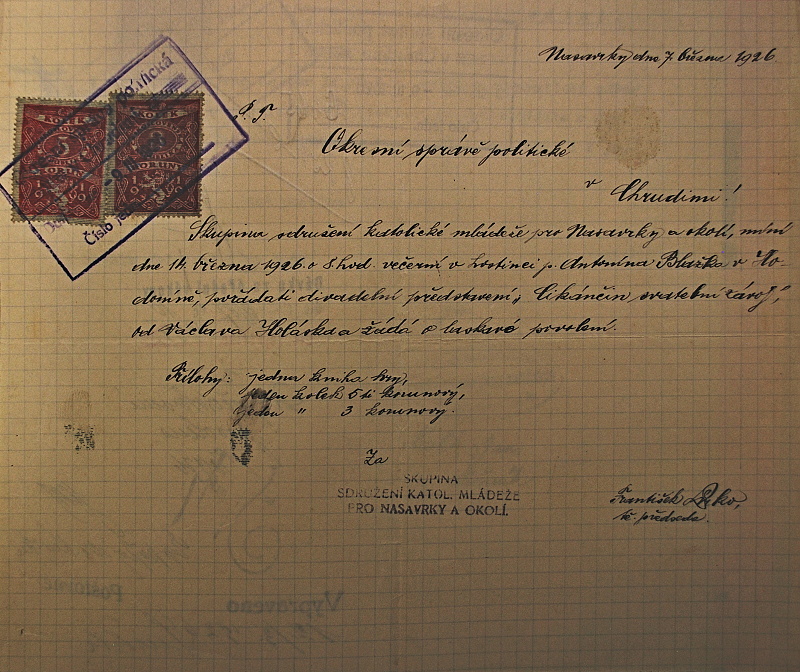 Nasavrky dne 7. března 1926.
P. T.
Okresní správě politické
v Chrudimi!
Skupina sdružení katolické mládeže pro Nasavrky a okolí, míní
dne 14. března 1926 o 8 hod. večerní v hostinci p. Antonína Blažka v Ho-
doníně, pořádati divadelní představení,
od Václava a žádá o laskavé povolení.
Přílohy: jedna kniha hry,
jeden kolek 5ti korunový,
jeden " 3 korunový.
Za
SKUPINA
SDRUŽENÍ KATOL. MLÁDEŽE
PRO NASAVRKY A OKOLÍ.
František
t. č. předseda.
KOLEK
KORUN
1919
KOLEK
KORUNY
1919
Číslo
Vypraveno